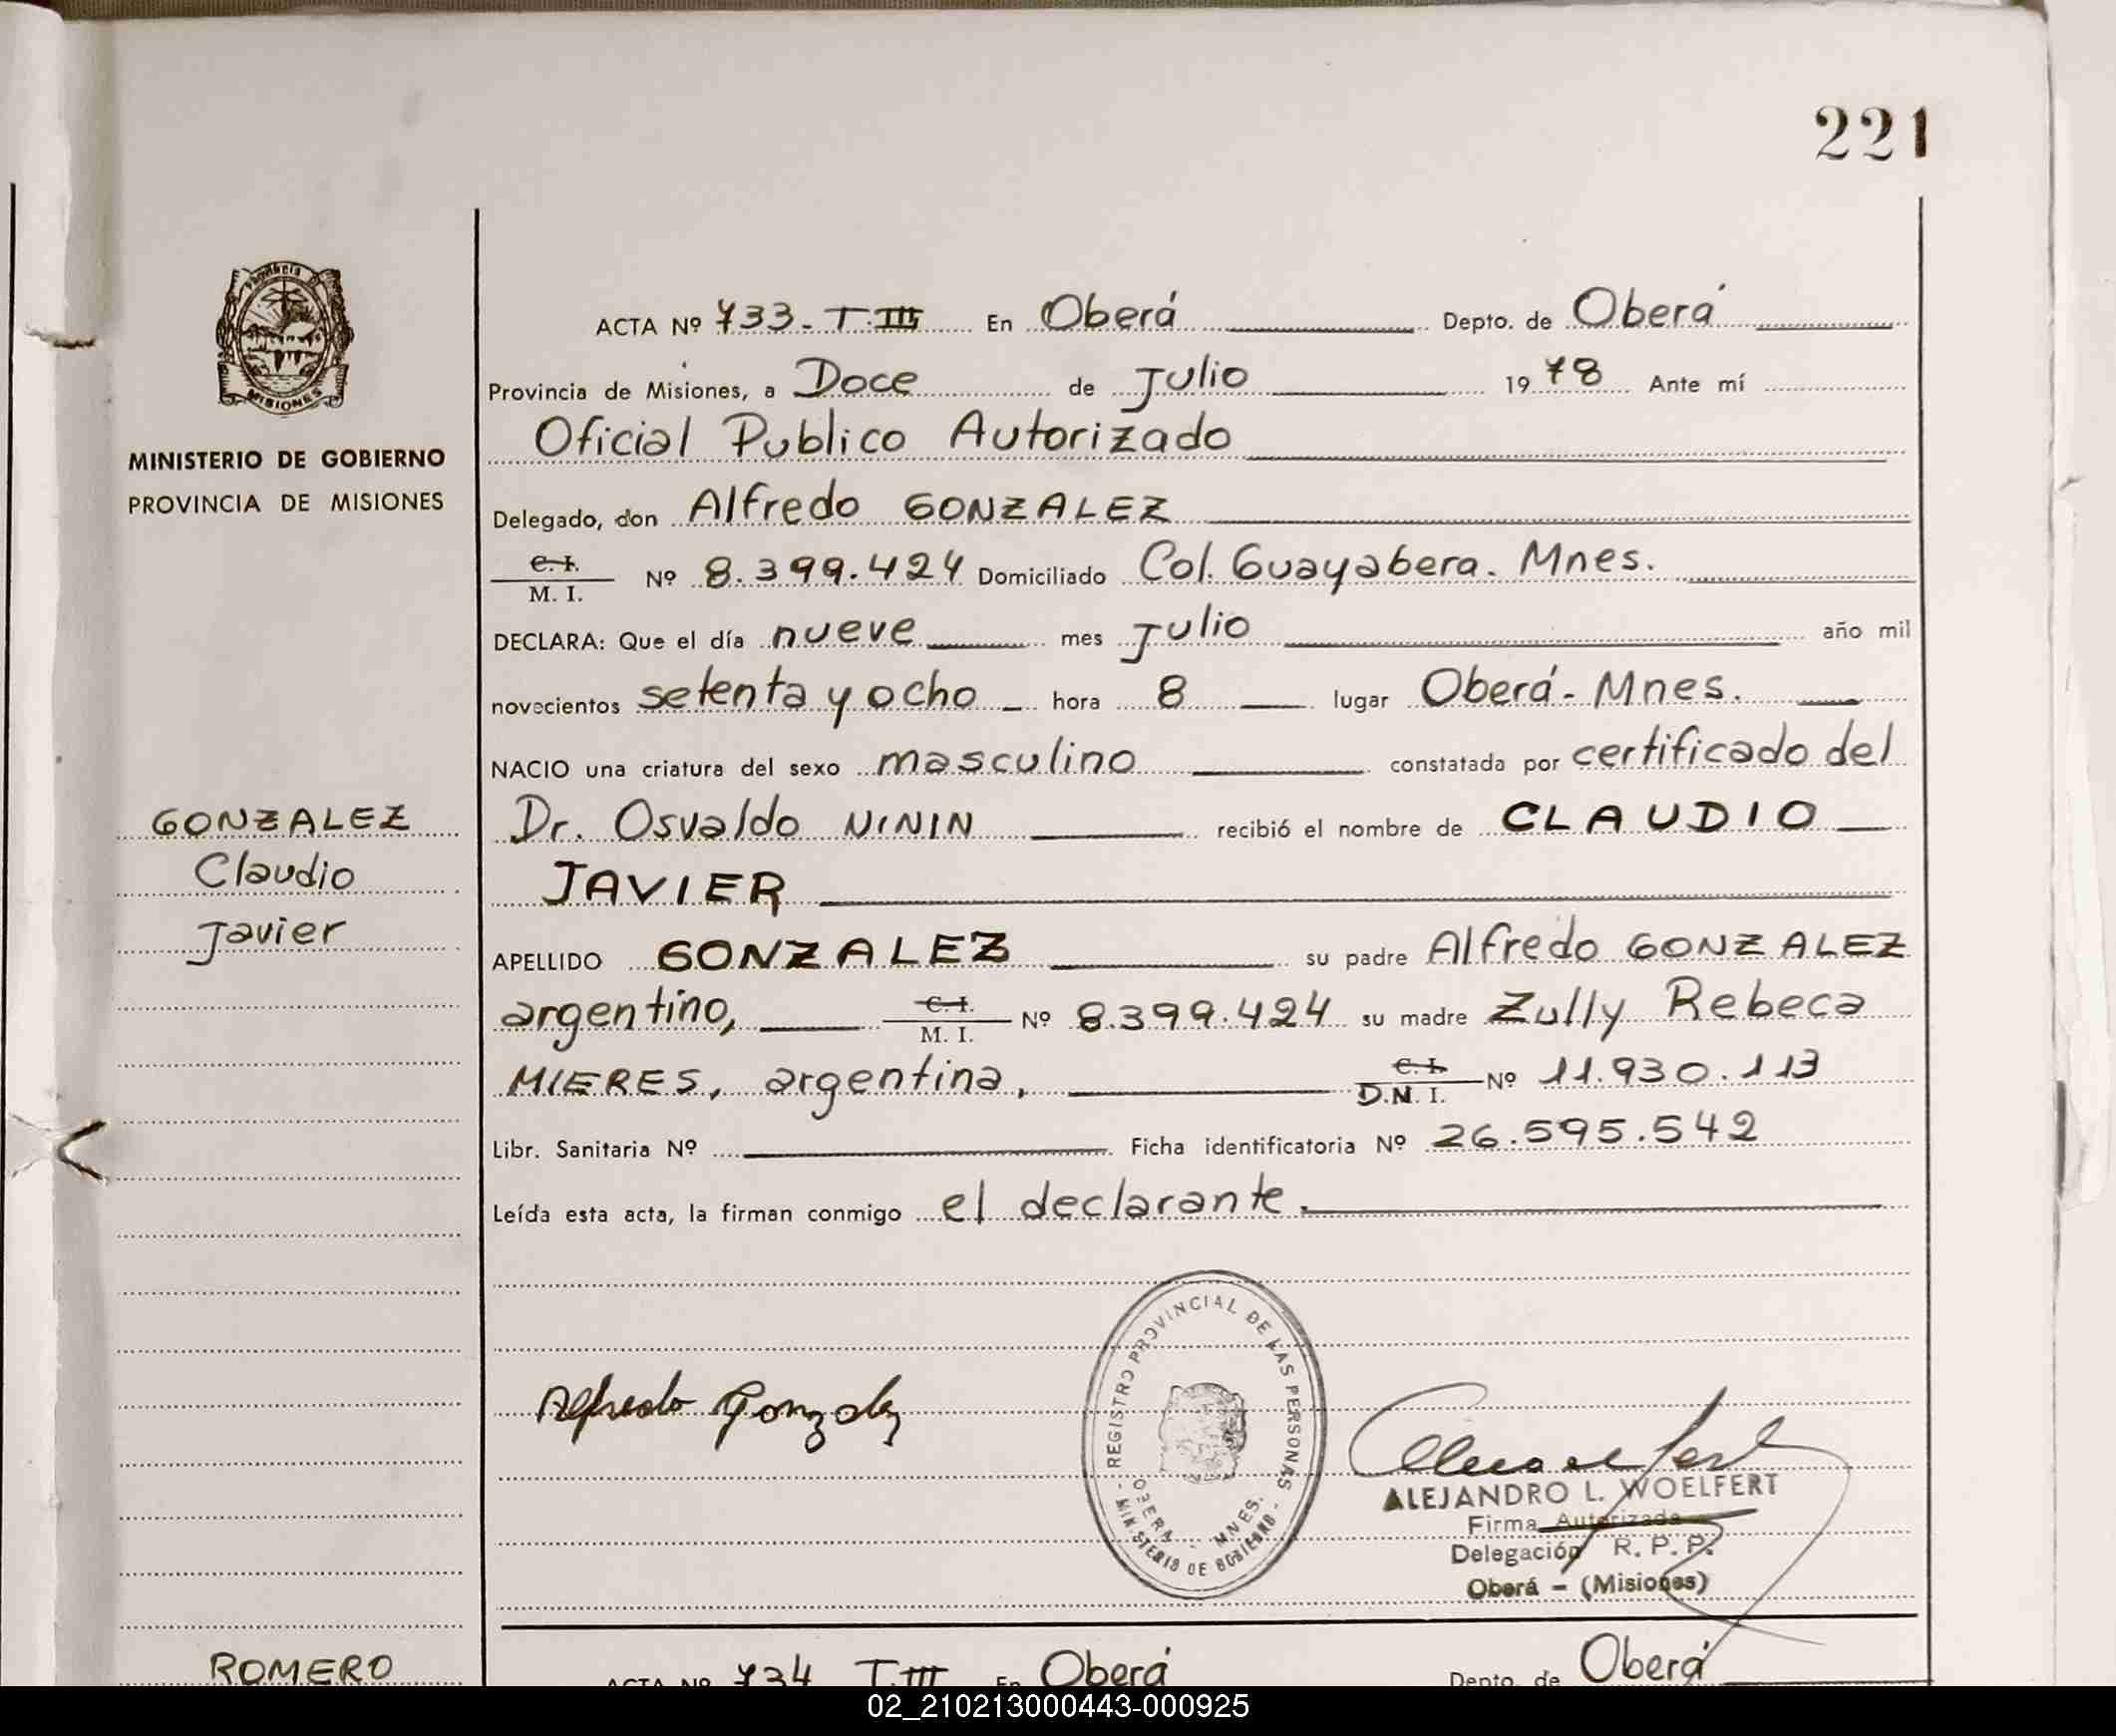 221
Provincia
MISIONES
MINISTERIO DE GOBIERNO
PROVINCIA DE MISIONES
GONZALEZ
Claudio
Javier
ACTA Nº 733- T.III En Oberá Depto. de Oberá
Provincia de Misiones, a Doce de Julio 1978 Ante mí
Oficial Publico Autorizado
Delegado, don Alfredo GONZALEZ
C. I.
M. I. Nº 8.399.424 Domiciliado Col. Guayabera. Mnes.
DECLARA: Que el día nueve mes Julio año mil
novecientos setenta y ocho hora 8 lugar Oberá- Mnes.
NACIO una criatura del sexo masculino constatada por certificado del
Dr. Osvaldo NININ recibió el nombre de CLAUDIO
JAVIER
APELLIDO GONZALEZ su padre Alfredo GONZALEZ
argentino, C. I. M. I. Nº 8.399.424 su madre Zully Rebeca
MIERES, argentina, C. I. D.N. I. Nº 11.930.113
Libr. Sanitaria Nº Ficha identificatoria Nº 26.595.542
Leída esta acta, la firman conmigo el declarante.
Alfredo Gonzalez
REGISTRO PROVINCIAL DE LAS PERSONAS
OBERA - MNES.
MINISTERIO DE GOBIERNO
ALEJANDRO L. WOELFERT
Firma Autorizada
Delegación R. P. P.
Oberá - (Misiones)
ROMERO
ACTA Nº 734 T.III En Oberá Depto. de Oberá
02_210213000443-000925